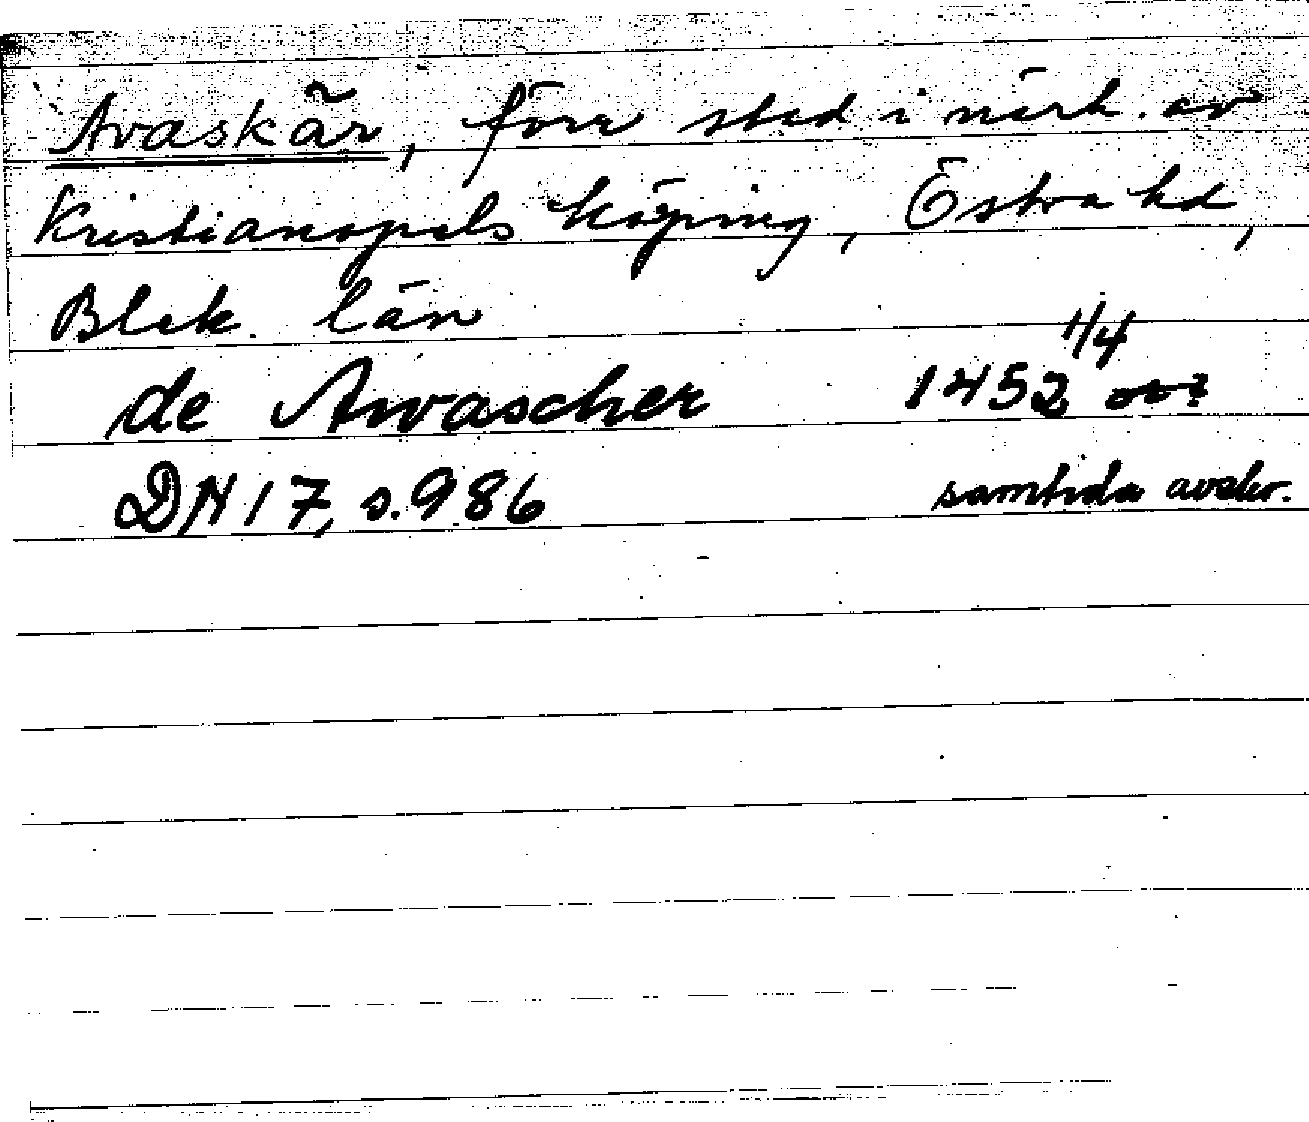 Avaskär, förr stad i närh. av
Kristianopels köping, Östra hd,
Blek. län
de Awascher 1452 1/4
DN 17, s. 986 samtida avskr.